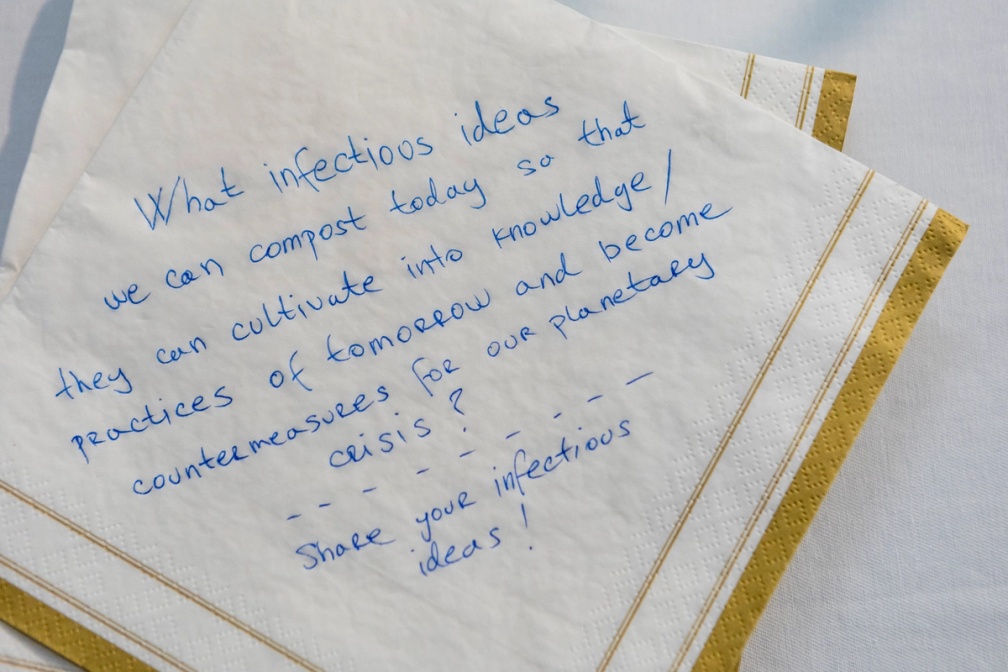 What infectious ideas
we can compost today so that
they can cultivate into knowledge/
practices of tomorrow and become
countermeasures for our planetary
crisis?
- - - - - - - - -
Share your infectious
ideas!